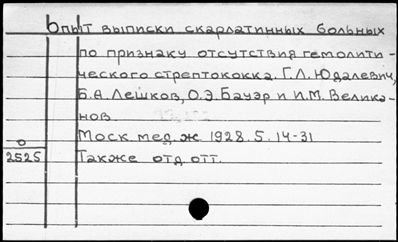 Опыт выписки скарлатинных больных
по признаку отсутствия гемолити-
ческого стрептококка. Г.Л. Юдалевич,
Б.А. Лешков, О.Э. Бауэр и И.М. Велика-
нов.
Моск. мед. ж. 1928. 5. 14-31
О
2525 Также отд. отт.